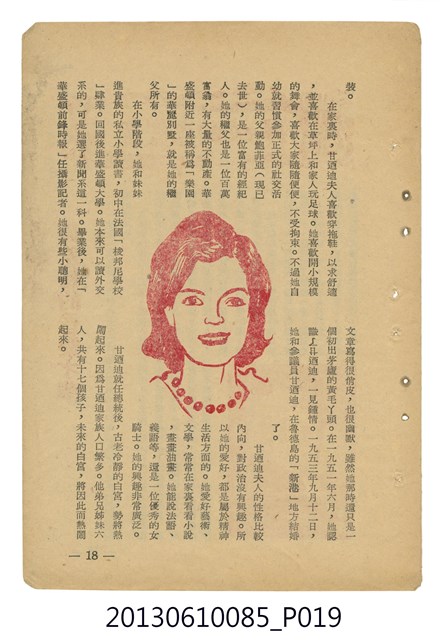 裝。
在家裏時，甘迺迪夫人喜歡穿拖鞋，以求舒適
，並喜歡在草坪上和家人玩足球。她喜歡開小規模
的舞會，喜歡大家隨隨便便，不受拘束。不過她自
幼就習慣參加正式的社交活
動。她的父親鮑菲亞（現已
去世），是一位富有的經紀
人。她的繼父也是一位百萬
富翁，有大量的不動產。華
盛頓附近一座被稱爲「樂園
」的華麗別墅，就是她的繼
父所有。
在小學階段，她和妹妹
進貴族的私立小學讀書，初中在法國「棱邦尼學校
」肄業。回國後進華盛頓大學。她本來可以讀外交
系的，可是她選了新聞系這一科。畢業後，她在「
華盛頓前鋒時報」任攝影記者。她很有些小聰明，
文章寫得很俏皮，也很幽默，雖然她那時還只是一
個初出茅廬的黃毛丫頭。在一九五一年六月，她認
識了甘迺迪，一見鍾情。一九五三年九月十二日，
她和參議員甘迺迪，在魯德島的「新港」地方結婚
了。
甘迺迪夫人的性格比較
內向，對政治沒有興趣。所
以她的愛好，都是屬於精神
生活方面的。她愛好藝術、
文學，常常在家裏看看小說
，畫畫油畫。她能說法語、
義語等，還是一位優秀的女
騎士。她的興趣非常廣泛。
甘迺迪就任總統後，古老冷靜的白宮，勢將熱
鬧起來。因爲甘迺迪家族人口繁多。他弟兄姊妹六
人，共有十七個孩子，未來的白宮，將因此而熱鬧
起來。
— 18 —
20130610085_P019